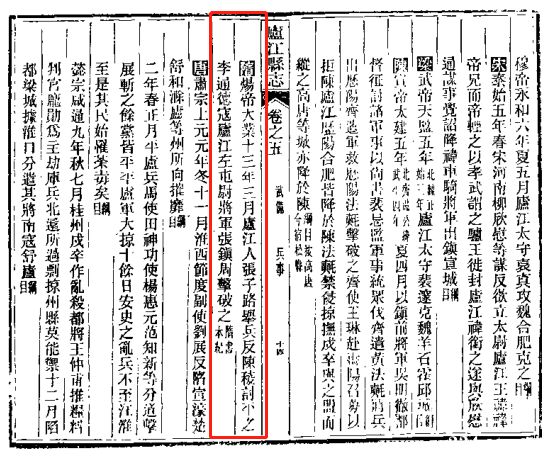 穆帝永和六年夏五月廬江太守袁真攻魏合肥克之綱目
宋泰始五年春宋河南柳欣慰等謀反欲立太尉廬江王禕禕
帝兄而帝輕之以孝武謂之驢王徙封廬江禕銜之遂與欣慰
通謀事覺詔降禕車騎將軍出鎮宣城綱目
梁武帝天監五年廬江太守裴邃克魏羊石霍邱城綱目
陳宣帝太建五年夏四月以鎮前將軍吳明徹都
督征討諸軍事以尚書裴忌監軍事統衆伐齊遣黃法𣰰將兵
出歷陽齊遣軍救歷陽法𣰰擊破之齊使王琳赴壽陽召募以
拒陳廬江歷陽合肥皆降於陳法𣰰禁侵掠撫戍卒與之盟而
縱之高唐等城亦降於陳綱目按高唐今宿松縣
廬江縣志 卷之五 武備 兵事 十四
隋煬帝大業十三年三月廬江人張子路舉兵反陳稜討平之
李通德寇廬江左屯尉將軍張鎮周擊破之隋書本紀
唐肅宗上元元年冬十一月淮西節度副使劉展反陷宣濠楚
舒和滁廬等州所向摧靡綱目
二年春正月平盧兵馬使田神功使楊惠元范知新等分道擊
展斬之餘黨皆平平盧軍大掠十餘日安史之亂兵不至江淮
至是其民始罹荼毒矣綱目
懿宗咸通九年秋七月桂州戍卒作亂殺都將王仲甫推糧料
判官龐勛爲主劫庫兵北還所過剽掠州縣莫能禦十二月陷
都梁城據淮口分遣其將南寇舒廬綱目